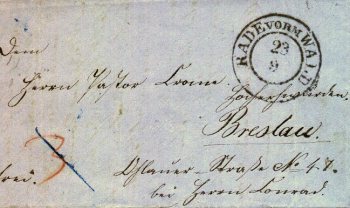 RADE VORM WALD
23
9
Dem
Herrn Pastor Crome
Hochehrwürden.
Breslau.
3
Ohlauer-Straße No
frei.
bei Herrn Conrad.